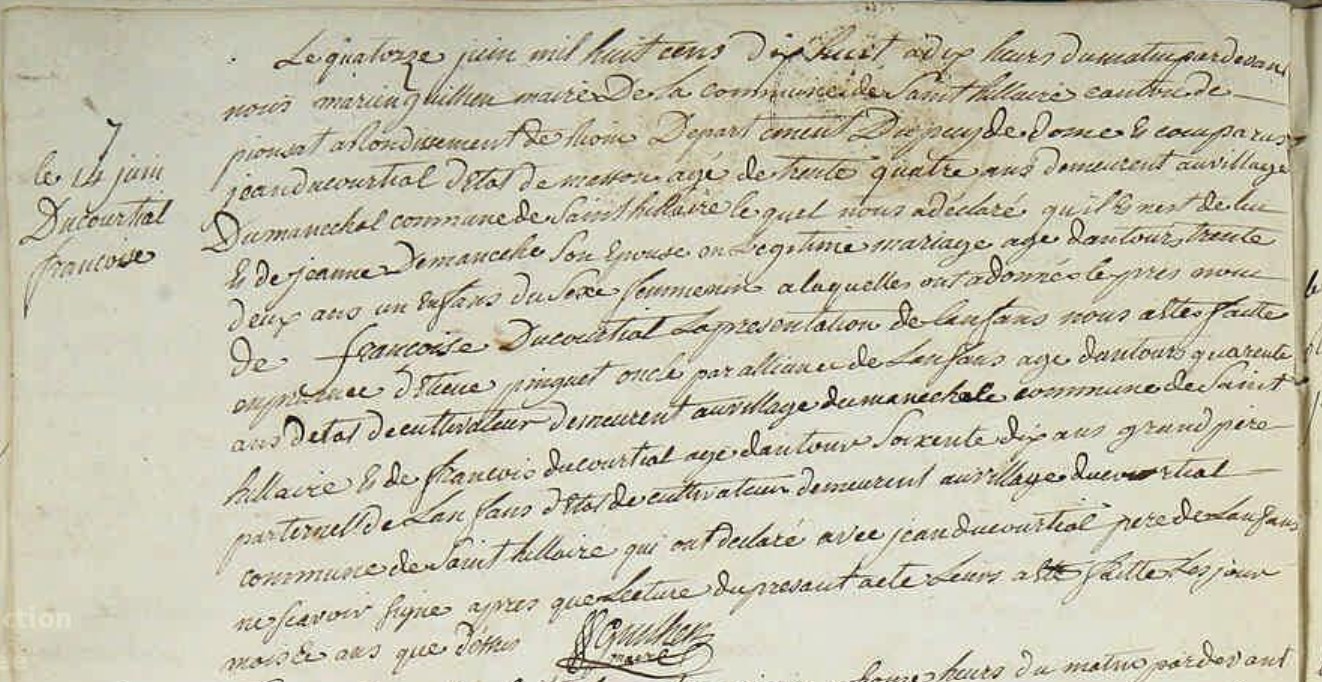 Le quatorze juin mil huit cens dix huit, a dix heurs du matin pardevant
nous marien guilhen maire De la commune de Saint hillaire canton de
pionsat arondissement de Riom Departement Du puy de Dome Est comparus
7
le 14 juin
Ducourtial
francoise
jean ducourtial d'etat de masson agé de trente quatre ans demeurent au village
Dumanechal commune de Saint hillaire le quel nous a déclaré qu'il Es nest de lui
Et de jeanne Demaneche Son Epouse en Legitime mariage age dantour trente
deux ans un Enfans du Sexe femmenin a laquelles ont a donnés le pres nom
de francoise Ducourtial La presentation de lanfans nous a ete faitte
en presence d'Etiene pinguet oncle par alliance de Lanfans age dantours quarente
ans d'etat de cultivateur demeurent au village dumanechale commune de Saint
hillaire Et de francois ducourtial age dantour Soixente dix ans grand pere
parternell de Lanfans d'Etat de cultivateur demeurent au village ducourtial
commune de Saint hillaire qui ont déclaré avec jean ducourtial pere de Lanfans
ne scavoir signe apres que Lecture du presant acte Leurs a ete faitte Les jour
mois Et ans que dessus Guilhen
maire
heurs du matin pardevant